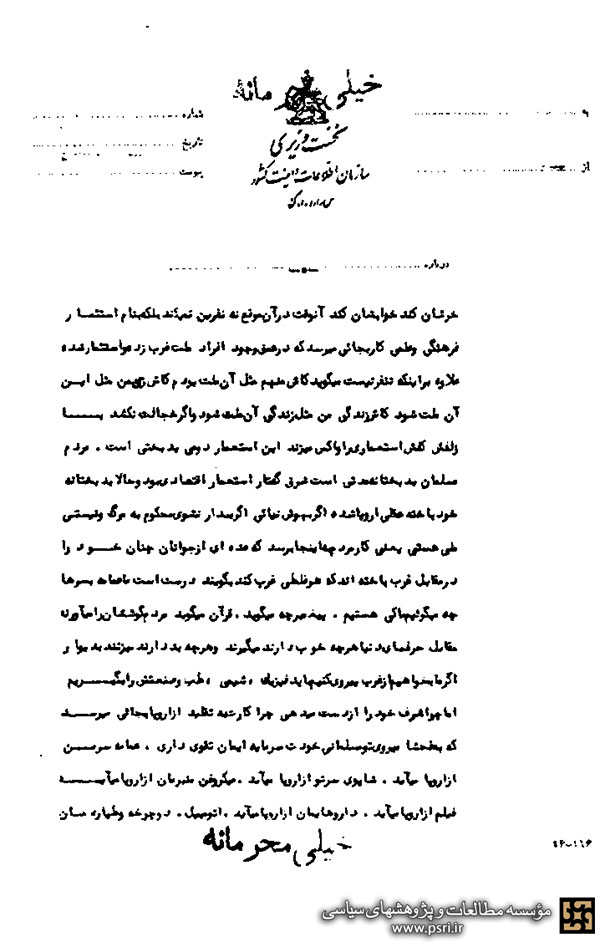 خیلی محرمانه
نخست وزیری
سازمان اطلاعات و امنیت کشور
س.ا.و.ا.ک
به
شماره
تاریخ
از
پیوست
درباره
خرشان کند خوابشان کند آنوقت در آن موقع نه نفرین نمیکند بلکه بنام استثمار
فرهنگی وطنی کار بجائی میرسد که در عمق وجود افراد ملت غرب زده و استثمار شده
علاوه بر اینکه تنفر نیست میگوید کاش منهم مثل آن ملت بودم کاش زی من مثل ایسن
آن ملت شود کاش زندگی من مثل زندگی آن ملت شود و اگر خجالت نکشد بسا
زلفش کفش استعماری را واکس میزند این استعمار دومی بدبختی است . مردم
مسلمان بدبختانه مدتی است شرق گفتار استعمار اقتصادی بود و حالا بدبختانه
خود باخته عقلی اروپا شده اگر بهوش نیائی اگر بیدار نشوی محکوم به مرگ و نیستی
ملی هستی یعنی کار مرد چه اینجا برسد که عده ای از جوانان چنان خسود را
در مقابل غرب باخته اند که هر غلطی غرب کند بگویند درست است ما عمامه بسرها
چه میگوئیم ماکی هستیم . پیغمبر چه میگوید . قرآن میگوید مردم گوششان را میآورند
مقابل حرفهای دنیا هرچه خوب دارند میگیرند و هرچه بد دارند میزنند بدیوار و
اگر ما بخواهیم از غرب پیروی کنیم باید فیزیک ، شیمی ، طب و صنعتش را بگیسریم
اما چرا شرف خود را از دست میدهی چرا کارت به تقلید از اروپا بجائی میرسد
که بفحشا میروی تو مسلمانی خودت سرمایه ایمان تقوی داری ، عمامه سر مسن
از اروپا میآید . شاپوی سر تو از اروپا میآید . میکروفن منبرمان از اروپا میآیسد
فیلم از اروپا میآید . داروهایمان از اروپا میآید . اتومبیل . دوچرخه و طیاره مان
خیلی محرمانه
۴۶-۱۱۶
مؤسسه مطالعات و پژوهشهای سیاسی
www.psri.ir